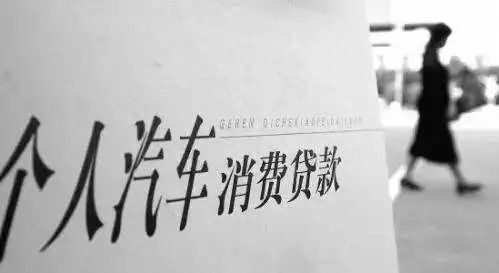 GEREN QICHEXIAOFEIDAIKUAN
个人汽车消费贷款